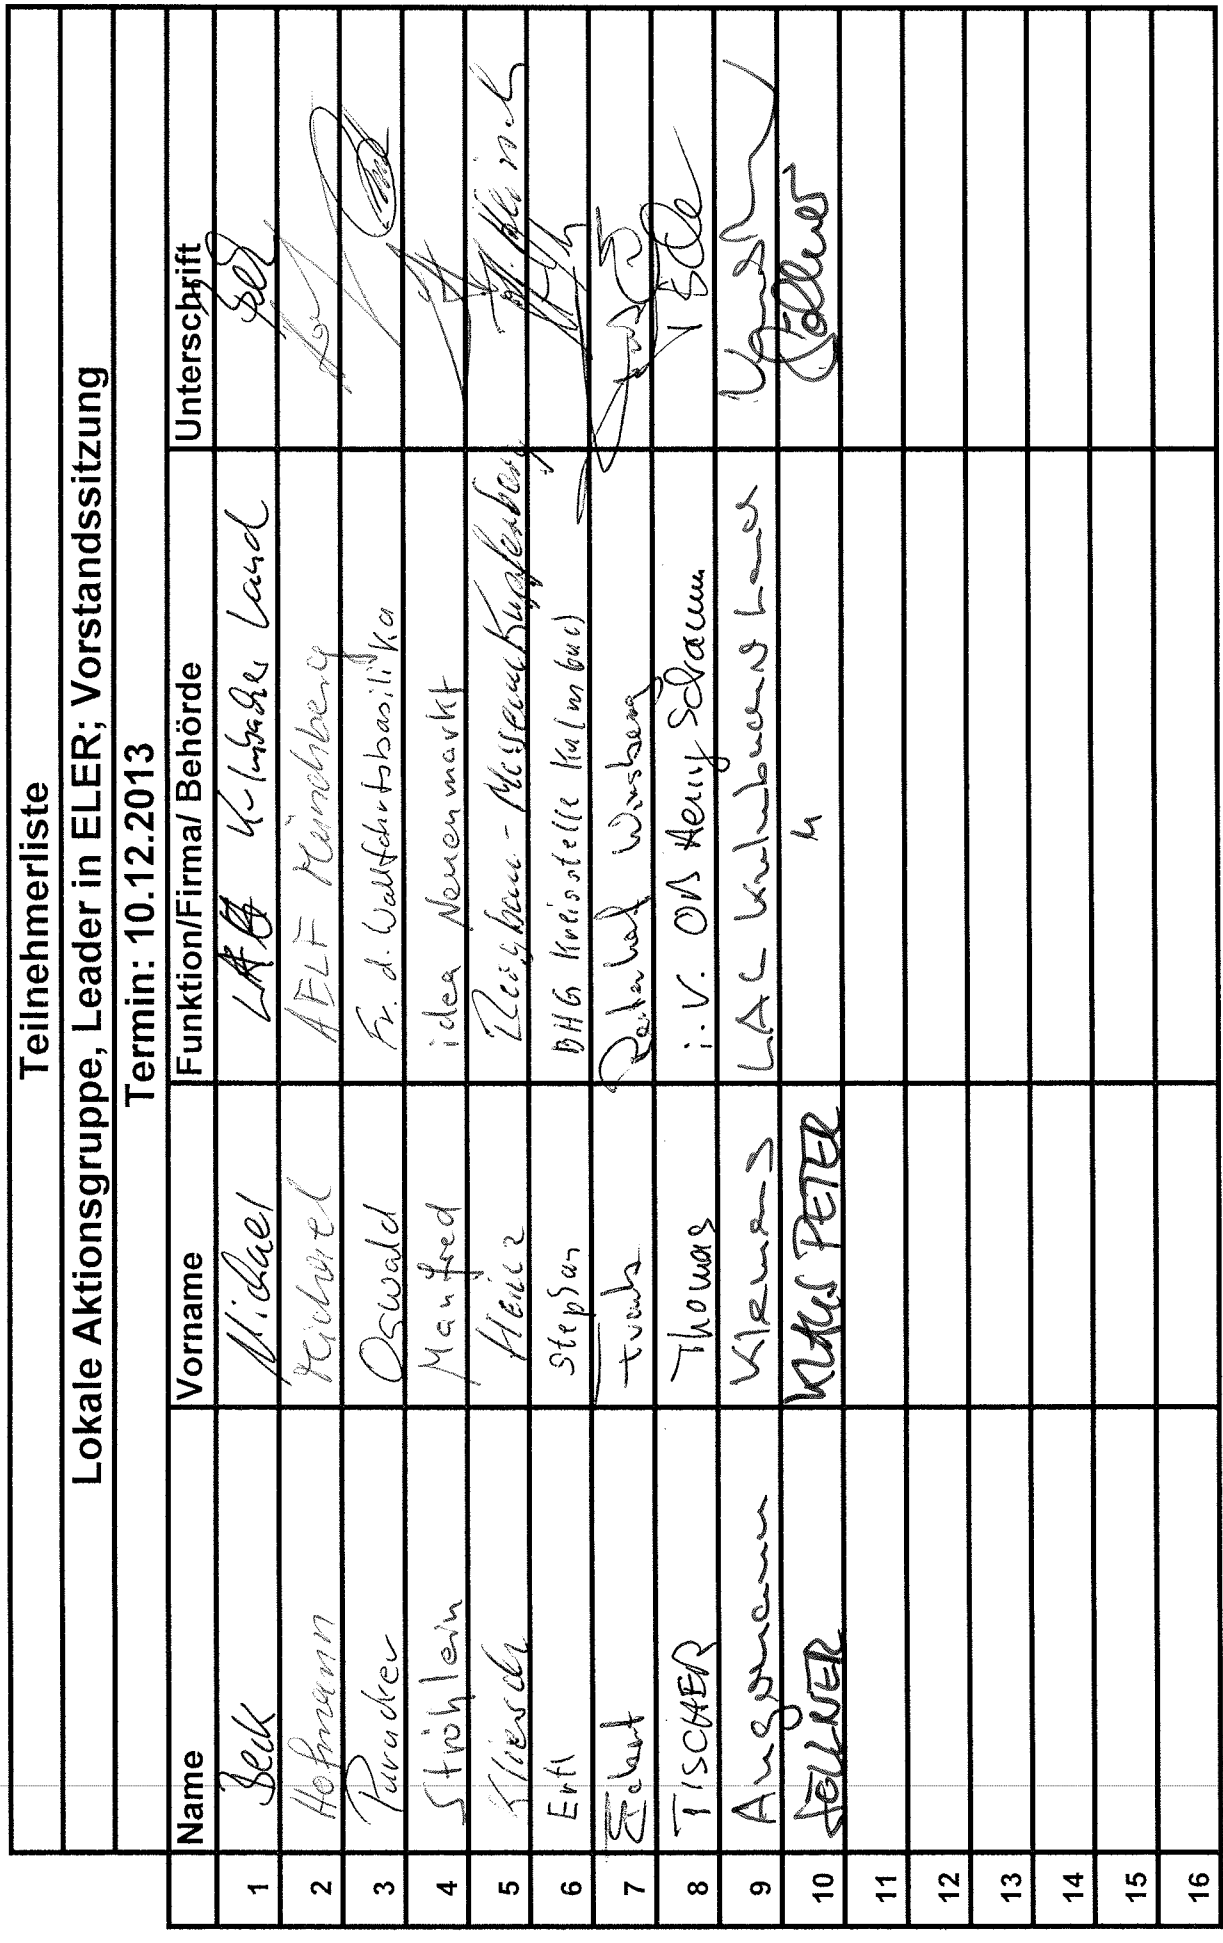 Teilnehmerliste
Lokale Aktionsgruppe, Leader in ELER; Vorstandssitzung
Termin: 10.12.2013
Name Vorname Funktion/Firma/ Behörde Unterschrift
1 Beck Michael LAG Kulmbacher Land Beck
2 Hofmann Michael AELF Münchberg
3 Purucker Oswald Fr. d. Wallfahrtsbasilika
4 Ströhlein Manfred idea Neuenmarkt
5 Heinz Kupferberg
6 Ertl Stephan BHG Kreisstelle Kulmbach
7 Wirsberg
8 TISCHER Thomas i.V. OB Henry Schramm
9 Angermann Klemens LAG Kulmbacher Land
10 SÖLLNER KLAUS PETER " Söllner
11
12
13
14
15
16